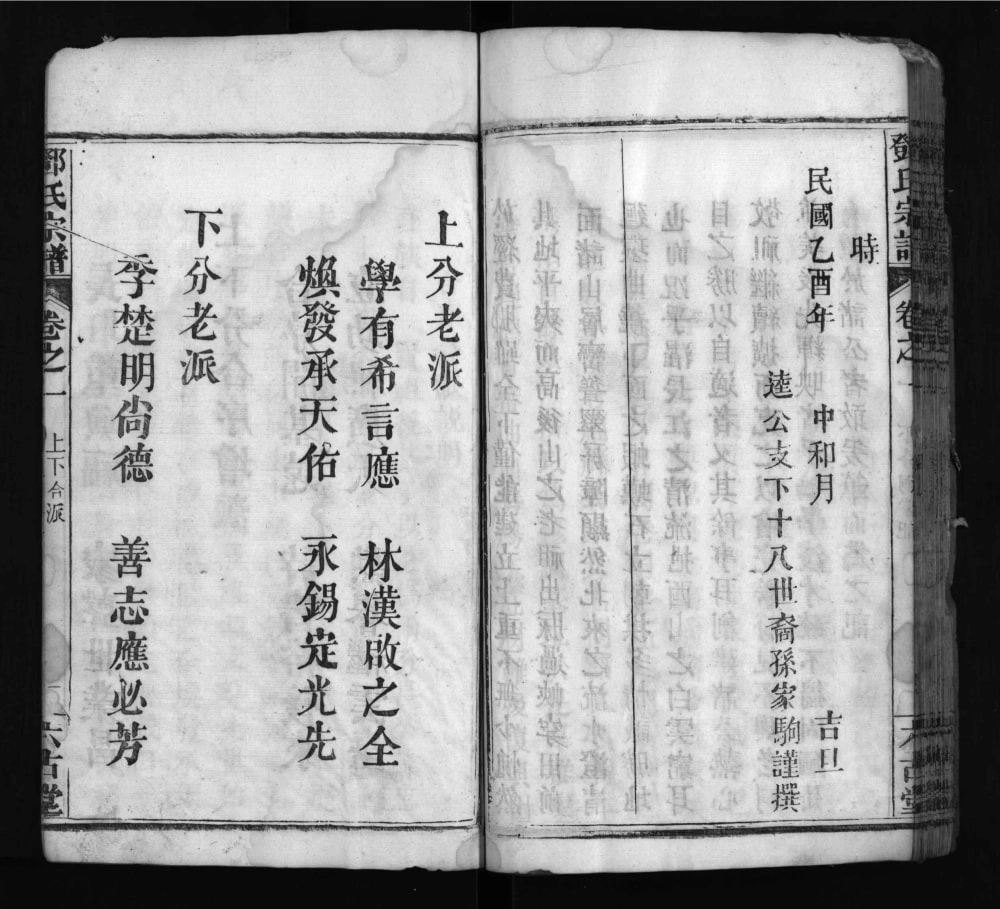 鄧氏宗譜
卷之一
六吉堂
時
民國乙酉年 中和月 吉旦
逵公支下十八世裔孫家駒謹撰
上分老派
學有希言應 林漢啟之全
煥發承天佑 永錫定光先
下分老派
季楚明尚德 善志應必芳
鄧氏宗譜
卷之一
上下合派
六吉堂